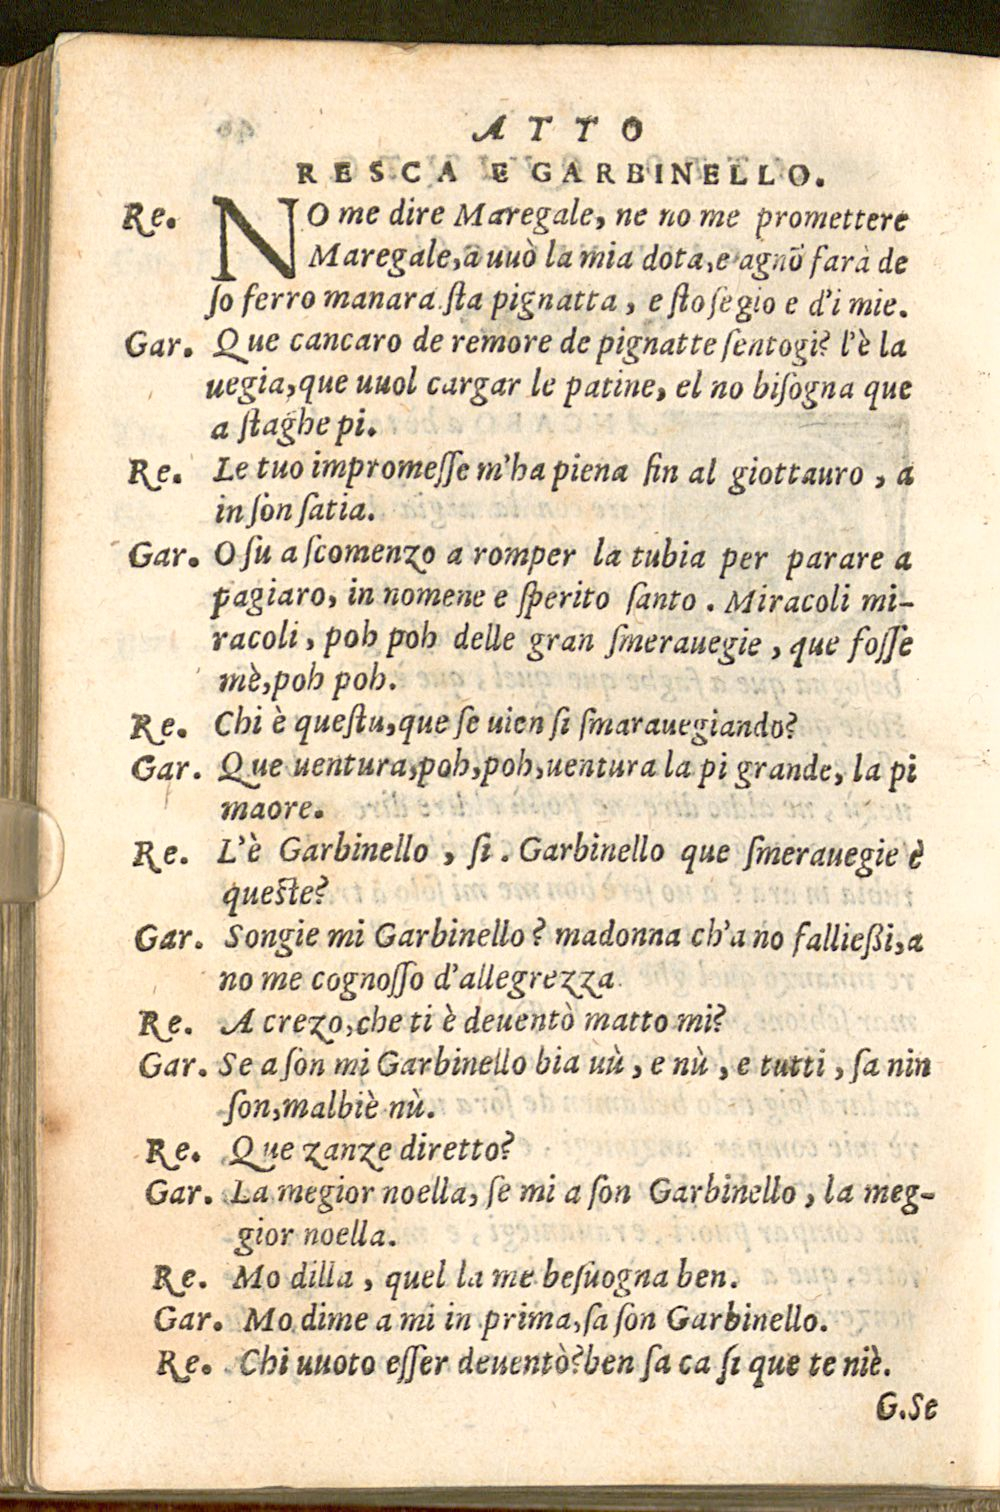 ATTO
RESCA E GARBINELLO.
Re. NO me dire Maregale, ne no me promettere
Maregale,a uuò la mia dota,e agnõ farà de
ſo ferro manara ſta pignatta, e ſto ſegio e d'i mie.
Gar. Que cancaro de remore de pignatte ſentogi? l'è la
uegia,que uuol cargar le patine, el no biſogna que
a ſtaghe pi.
Re. Le tuo impromeſſe m'ha piena fin al giottauro, a
in ſon ſatia.
Gar. O ſu a ſcomenzo a romper la tubia per parare a
pagiaro, in nomene e ſperito ſanto. Miracoli mi-
racoli, poh poh delle gran ſmerauegie, que foſſe
mè,poh poh.
Re. Chi è queſtu,que ſe uien ſi ſmarauegiando?
Gar. Que uentura,poh,poh,uentura la pi grande, la pi
maore.
Re. L'è Garbinello, ſi. Garbinello que ſmerauegie è
queſte?
Gar. Songie mi Garbinello? madonna ch'a no falließi,a
no me cognoſſo d'allegrezza.
Re. A crezo,che ti è deuentò matto mi?
Gar. Se a ſon mi Garbinello bia uù, e nù, e tutti, ſa nin
ſon,malbiè nù.
Re. Que zanze diretto?
Gar. La megior noella, ſe mi a ſon Garbinello, la meg-
gior noella.
Re. Mo dilla, quel la me beſuogna ben.
Gar. Mo dime a mi in prima,ſa ſon Garbinello.
Re. Chi uuoto eſſer deuentò?ben ſa ca ſi que te niè.
G.Se